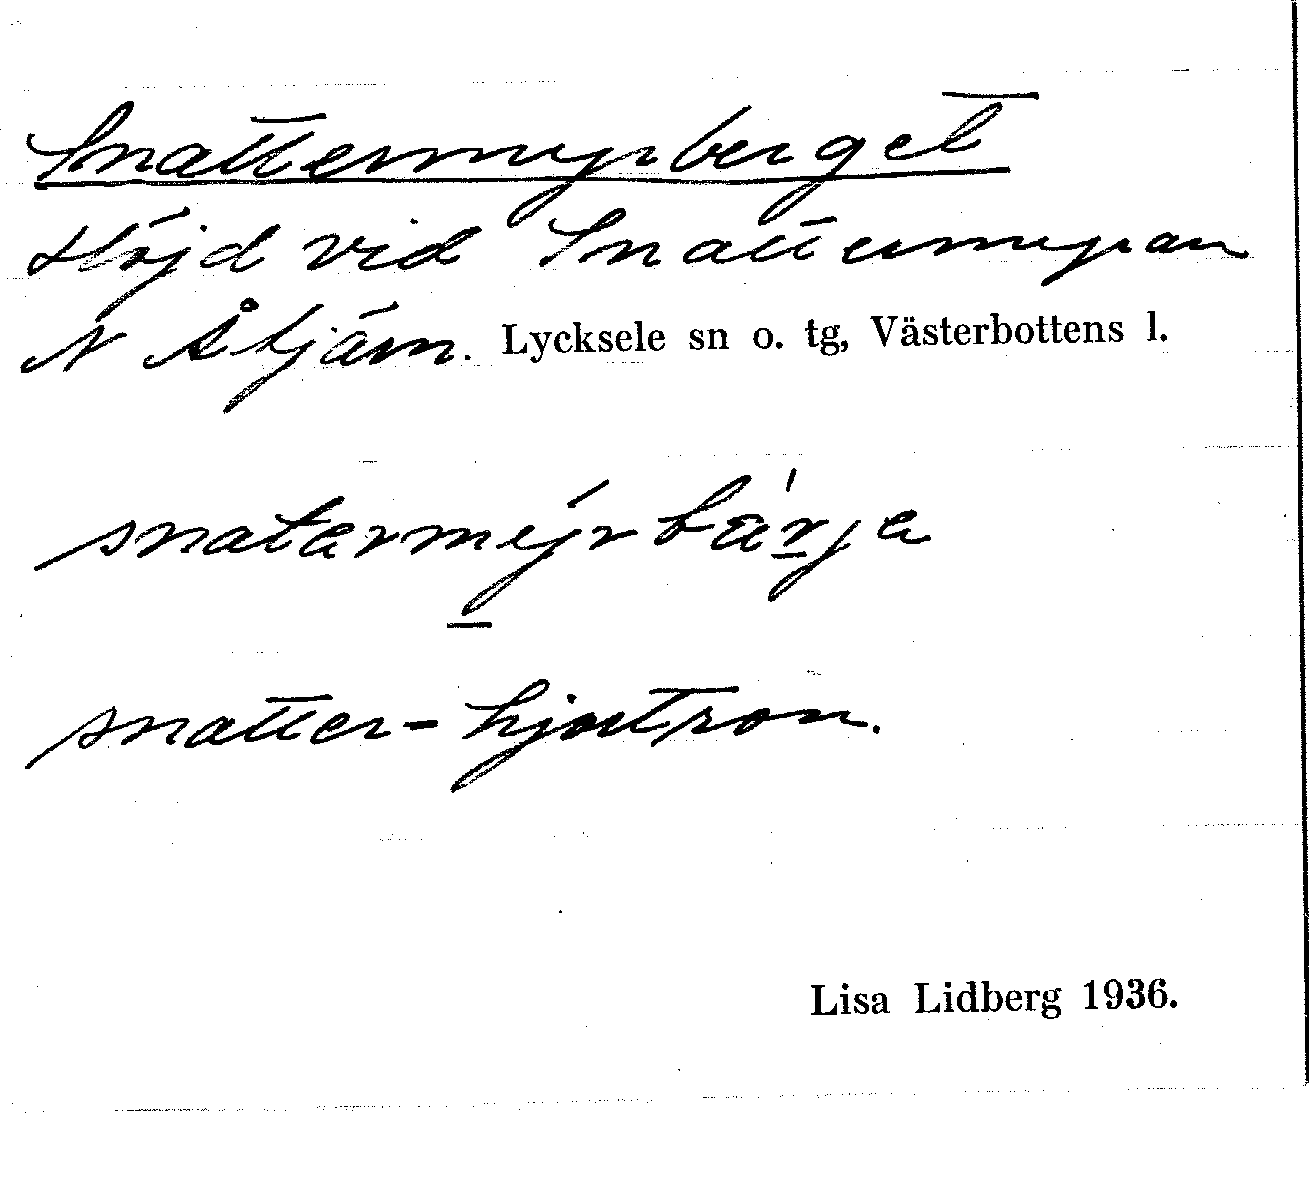 Snattermyrberget
Höjd vid Snattermyran
N Åtjärn. Lycksele sn o. tg, Västerbottens l.
snatarmy̱r bäṟja
snatter- hjortron.
Lisa Lidberg 1936.